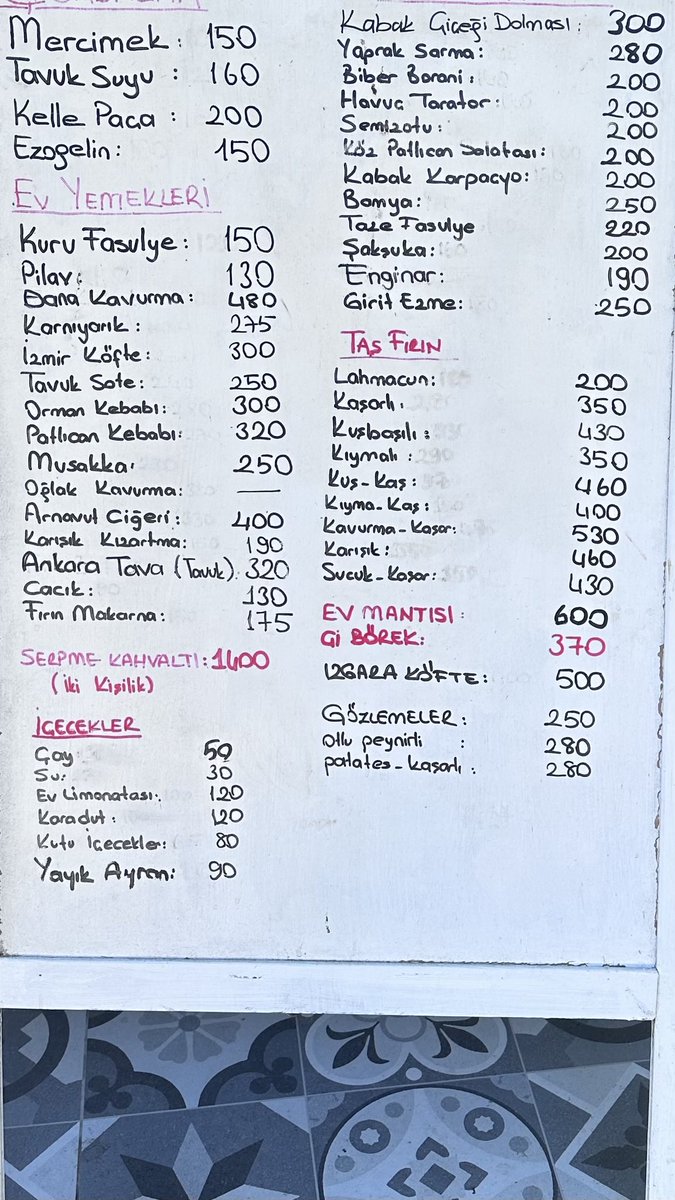 Mercimek: 150
Tavuk Suyu: 160
Kelle Paça: 200
Ezogelin: 150
EV YEMEKLERİ
Kuru Fasulye: 150
Pilav: 130
Dana Kavurma: 480
Karnıyarık: 275
İzmir Köfte: 300
Tavuk Sote: 250
Orman Kebabı: 300
Patlıcan Kebabı: 320
Musakka: 250
Oğlak Kavurma: —
Arnavut Ciğeri: 400
Karışık Kızartma: 190
Ankara Tava (Tavuk): 320
Cacık: 130
Fırın Makarna: 175
SERPME KAHVALTI: 1400
(İki Kişilik)
İÇECEKLER
Çay 50
Su: 30
Ev Limonatası: 120
Karadut: 120
Kutu İçecekler: 80
Yayık Ayran: 90
Kabak Çiçeği Dolması: 300
Yaprak Sarma: 280
Biber Borani: 200
Havuç Tarator: 200
Semizotu: 200
Köz Patlıcan Salatası: 200
Kabak Karpaçyo: 200
Bamya: 250
Taze Fasulye 220
Şakşuka: 200
Enginar: 190
Girit Ezme: 250
TAŞ FIRIN
Lahmacun: 200
Kaşarlı: 350
Kuşbaşılı: 430
Kıymalı: 350
Kuş-Kaş: 460
Kıyma-Kaş: 400
Kavurma-Kaşar: 530
Karışık: 460
Sucuk-Kaşar: 430
EV MANTISI: 600
Çİ BÖREK: 370
IZGARA KÖFTE: 500
GÖZLEMELER: 250
otlu peynirli: 280
patates-kaşarlı: 280